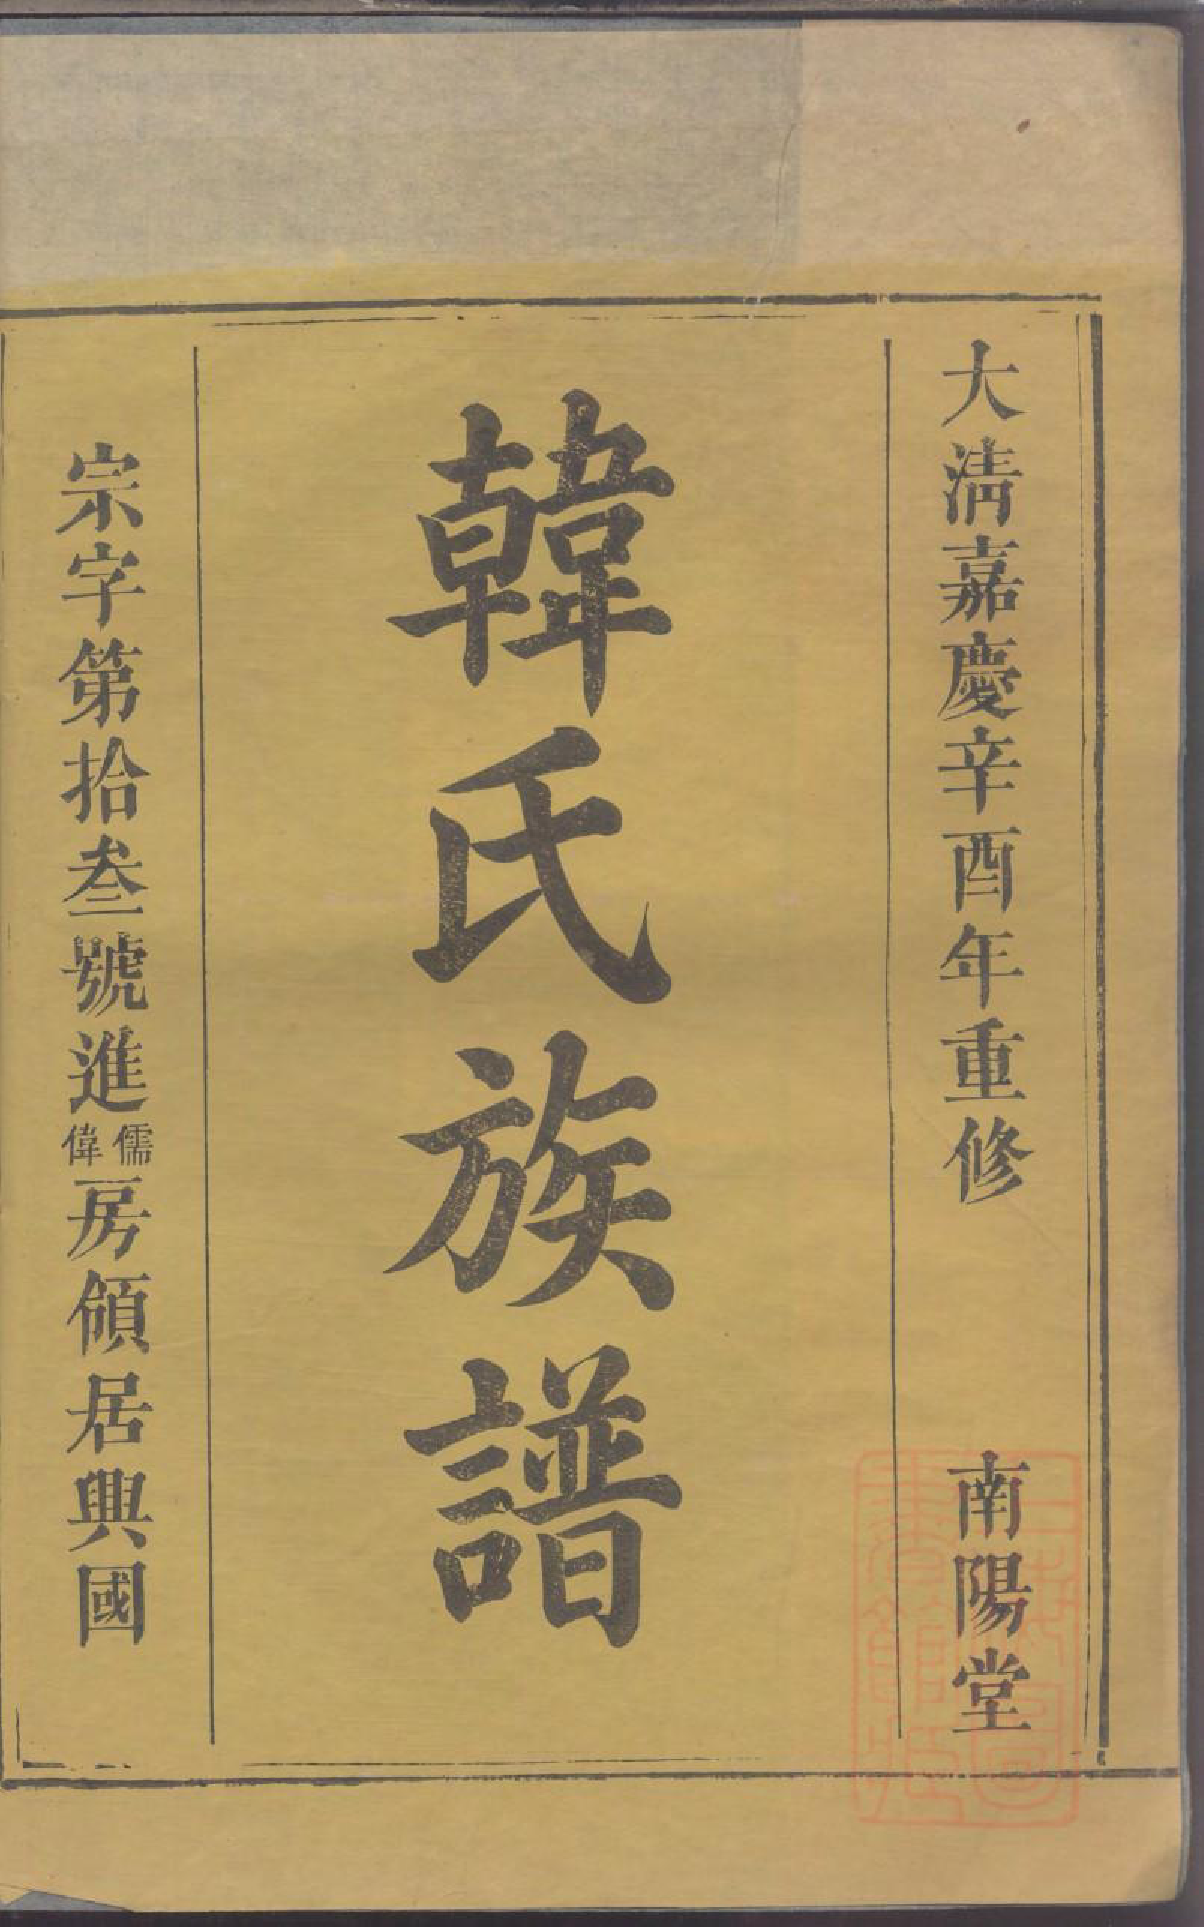 大清嘉慶辛酉年重修　南陽堂
韓氏族譜
宗字第拾叁號進儒偉房領居興國